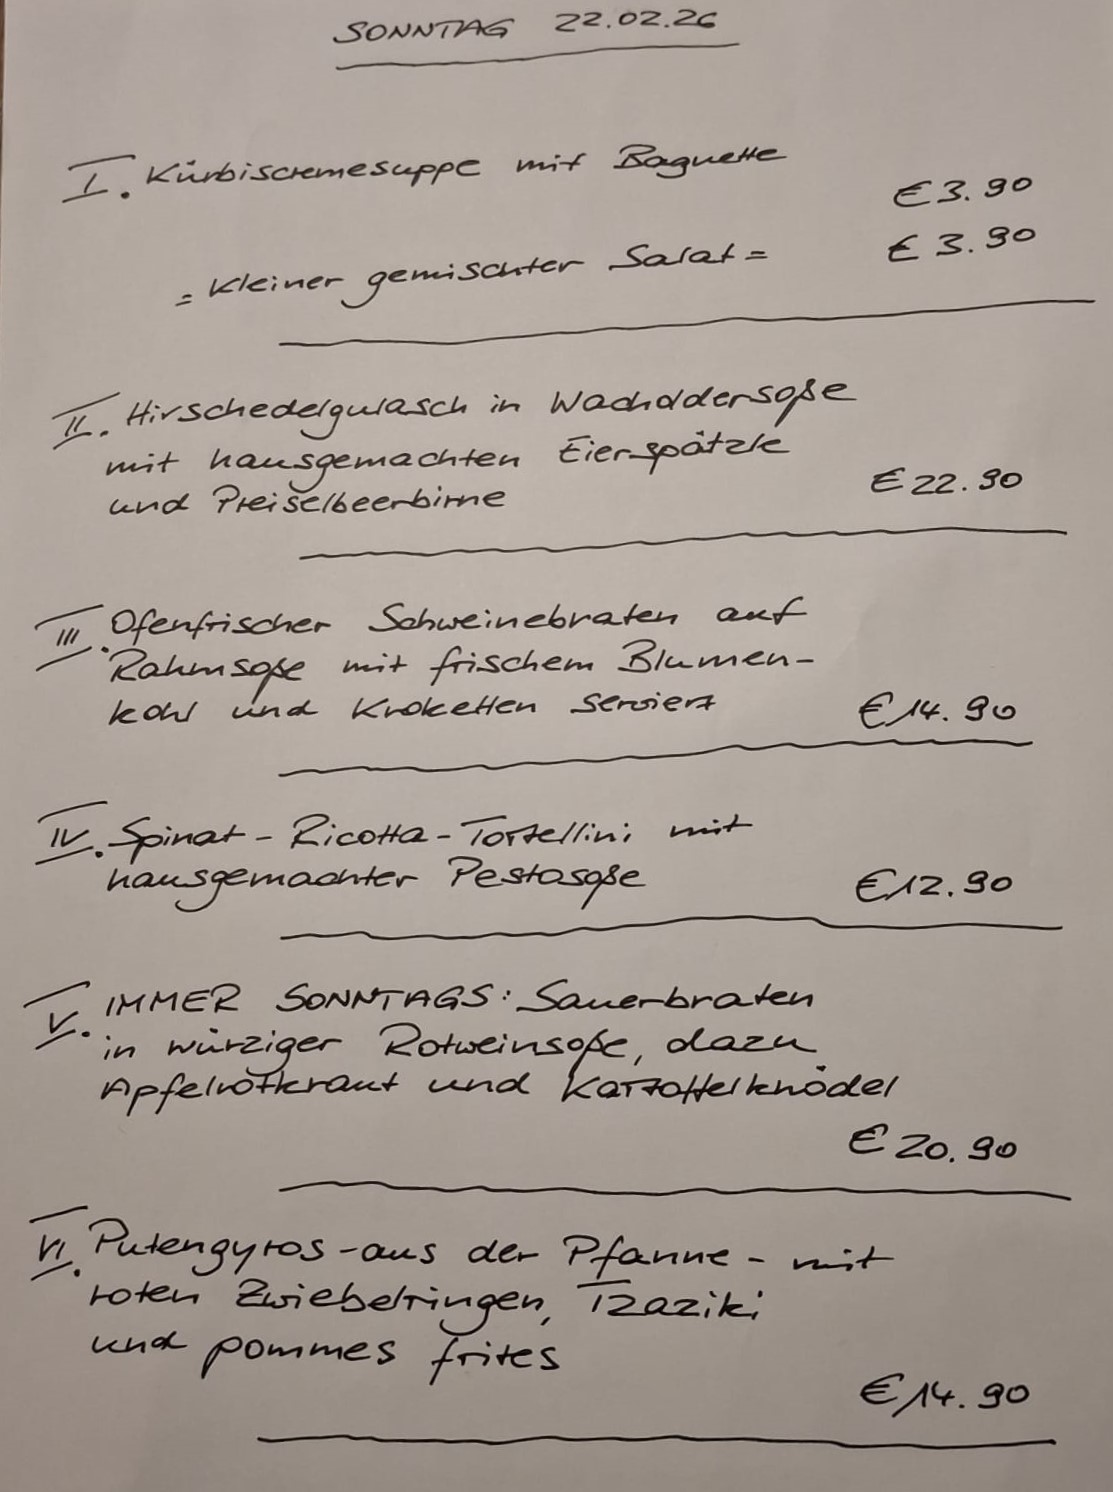 SONNTAG 22.02.26
I. Kürbiscremesuppe mit Baguette
€ 3.90
= Kleiner gemischter Salat = € 3.90
II. Hirschedelgulasch in Wacholdersoße
mit hausgemachten Eierspätzle
und Preiselbeerbirne € 22.90
III. Ofenfrischer Schweinebraten auf
Rahmsoße mit frischem Blumen-
kohl und Kroketten serviert € 14.90
IV. Spinat-Ricotta-Tortellini mit
hausgemachter Pestosoße € 12.90
V. IMMER SONNTAGS: Sauerbraten
in würziger Rotweinsoße, dazu
Apfelrotkraut und Kartoffelknödel
€ 20.90
VI. Putengyros - aus der Pfanne - mit
roten Zwiebelringen, Tzaziki
und pommes frites
€ 14.90